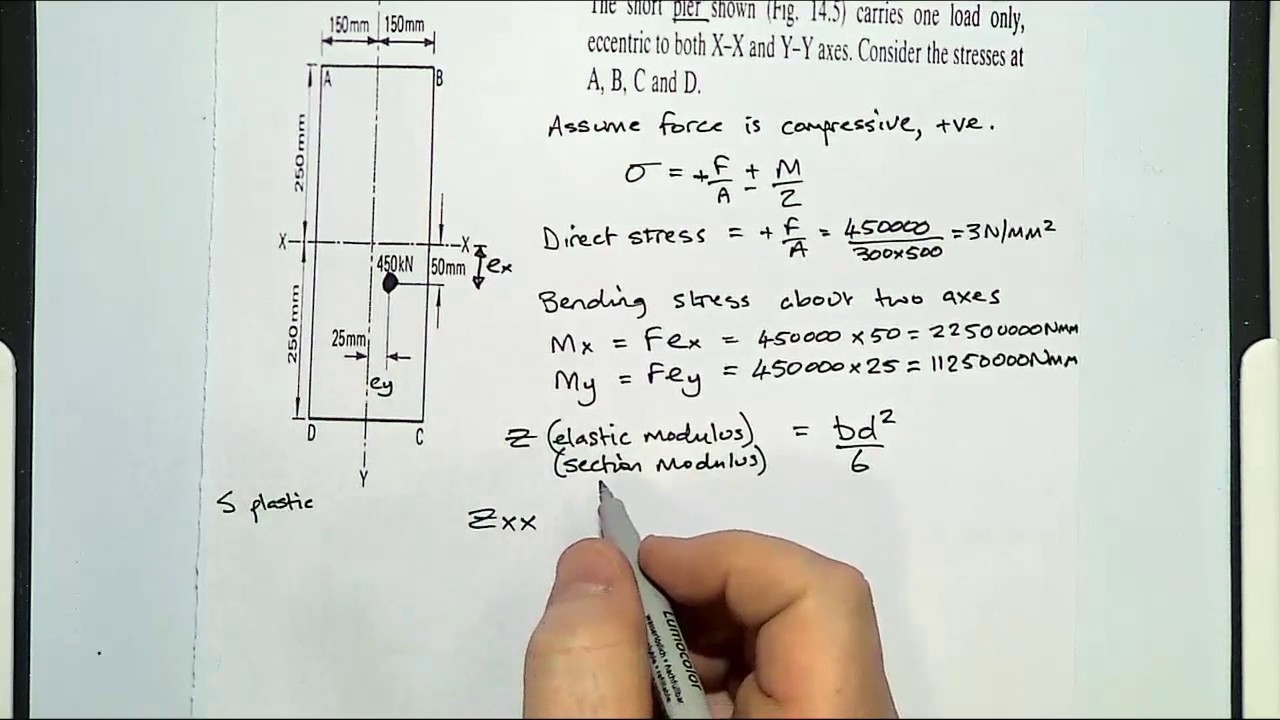 150mm 150mm
A B
250mm
X X
450kN 50mm ex
250mm
25mm
ey
D C
Y
S plastic
The short pier shown (Fig. 14.5) carries one load only,
eccentric to both X–X and Y–Y axes. Consider the stresses at
A, B, C and D.
Assume force is compressive, +ve.
σ = + F/A ± M/Z
Direct stress = + F/A = 450000/300x500 = 3N/mm²
Bending stress about two axes
Mx = Fex = 450000 x 50 = 22500000Nmm
My = Fey = 450000 x 25 = 11250000Nmm
Z (elastic modulus) = bd²/6
(section modulus)
Zxx
LUMOCOLOR